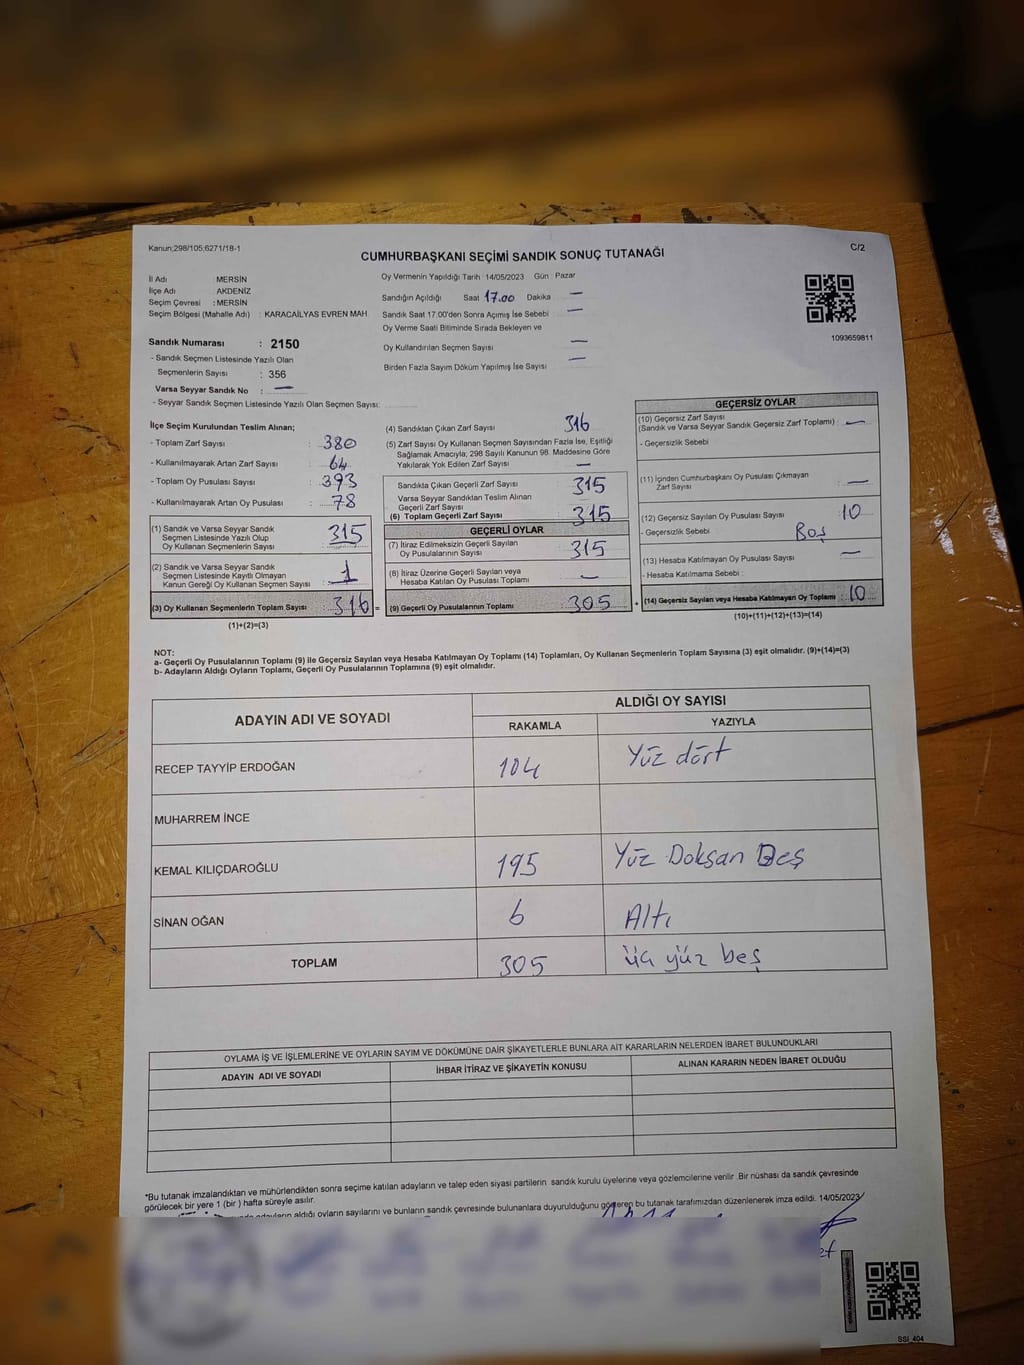 Kanun;298/105;6271/18-1
C/2
CUMHURBAŞKANI SEÇİMİ SANDIK SONUÇ TUTANAĞI
İl Adı : MERSİN
İlçe Adı : AKDENİZ
Seçim Çevresi : MERSİN
Seçim Bölgesi (Mahalle Adı) : KARACAİLYAS EVREN MAH
Sandık Numarası : 2150
- Sandık Seçmen Listesinde Yazılı Olan
Seçmenlerin Sayısı : 356
Varsa Seyyar Sandık No : —
- Seyyar Sandık Seçmen Listesinde Yazılı Olan Seçmen Sayısı:
Oy Vermenin Yapıldığı Tarih :14/05/2023 Gün : Pazar
Sandığın Açıldığı Saat 17.00 Dakika —
Sandık Saat 17.00'den Sonra Açımış İse Sebebi —
Oy Verme Saati Bitiminde Sırada Bekleyen ve
Oy Kullandırılan Seçmen Sayısı —
Birden Fazla Sayım Döküm Yapılmış İse Sayısı —
1093659811
İlçe Seçim Kurulundan Teslim Alınan;
- Toplam Zarf Sayısı : 380
- Kullanılmayarak Artan Zarf Sayısı : 64
- Toplam Oy Pusulası Sayısı : 393
- Kullanılmayarak Artan Oy Pusulası : 78
(1) Sandık ve Varsa Seyyar Sandık
Seçmen Listesinde Yazılı Olup
Oy Kullanan Seçmenlerin Sayısı : 315
(2) Sandık ve Varsa Seyyar Sandık
Seçmen Listesinde Kayıtlı Olmayan
Kanun Gereği Oy Kullanan Seçmen Sayısı : 1
(3) Oy Kullanan Seçmenlerin Toplam Sayısı : 316 =
(1)+(2)=(3)
(4) Sandıktan Çıkan Zarf Sayısı 316
(5) Zarf Sayısı Oy Kullanan Seçmen Sayısından Fazla İse, Eşitliği
Sağlamak Amacıyla; 298 Sayılı Kanunun 98. Maddesine Göre
Yakılarak Yok Edilen Zarf Sayısı —
Sandıkta Çıkan Geçerli Zarf Sayısı 315
Varsa Seyyar Sandıktan Teslim Alınan
Geçerli Zarf Sayısı
(6) Toplam Geçerli Zarf Sayısı 315
GEÇERLİ OYLAR
(7) İtiraz Edilmeksizin Geçerli Sayılan
Oy Pusulalarının Sayısı 315
(8) İtiraz Üzerine Geçerli Sayılan veya
Hesaba Katılan Oy Pusulası Toplamı —
(9) Geçerli Oy Pusulalarının Toplamı 305 +
GEÇERSİZ OYLAR
(10) Geçersiz Zarf Sayısı
(Sandık ve Varsa Seyyar Sandık Geçersiz Zarf Toplamı) : —
- Geçersizlik Sebebi
(11) İçinden Cumhurbaşkanı Oy Pusulası Çıkmayan
Zarf Sayısı —
(12) Geçersiz Sayılan Oy Pusulası Sayısı 10
- Geçersizlik Sebebi Boş
(13) Hesaba Katılmayan Oy Pusulası Sayısı —
- Hesaba Katılmama Sebebi :
(14) Geçersiz Sayılan veya Hesaba Katılmayan Oy Toplamı : 10
(10)+(11)+(12)+(13)=(14)
NOT:
a- Geçerli Oy Pusulalarının Toplamı (9) ile Geçersiz Sayılan veya Hesaba Katılmayan Oy Toplamı (14) Toplamları, Oy Kullanan Seçmenlerin Toplam Sayısına (3) eşit olmalıdır. (9)+(14)=(3)
b- Adayların Aldığı Oyların Toplamı, Geçerli Oy Pusulalarının Toplamına (9) eşit olmalıdır.
ADAYIN ADI VE SOYADI
ALDIĞI OY SAYISI
RAKAMLA YAZIYLA
RECEP TAYYİP ERDOĞAN 104 Yüz dört
MUHARREM İNCE
KEMAL KILIÇDAROĞLU 195 Yüz Doksan Beş
SİNAN OĞAN 6 Altı
TOPLAM 305 üç yüz beş
OYLAMA İŞ VE İŞLEMLERİNE VE OYLARIN SAYIM VE DÖKÜMÜNE DAİR ŞİKAYETLERLE BUNLARA AİT KARARLARIN NELERDEN İBARET BULUNDUKLARI
ADAYIN ADI VE SOYADI İHBAR İTİRAZ VE ŞİKAYETİN KONUSU ALINAN KARARIN NEDEN İBARET OLDUĞU
*Bu tutanak imzalandıktan ve mühürlendikten sonra seçime katılan adayların ve talep eden siyasi partilerin sandık kurulu üyelerine veya gözlemcilerine verilir .Bir nüshası da sandık çevresinde
görülecek bir yere 1 (bir ) hafta süreyle asılır.
adayların aldığı oyların sayılarını ve bunların sandık çevresinde bulunanlara duyurulduğunu gösteren bu tutanak tarafımızdan düzenlenerek imza edildi. 14/05/2023
SSI_404